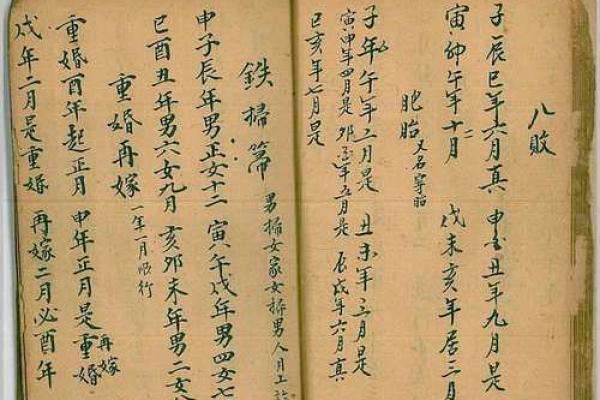 八敗
子辰巳年六月真 申酉丑年九月是
寅卯午年十二月 戌未亥年居三月
肥胎 又名胎
子年午年二月是 丑未年三月是
寅申年四月是 卯酉年五月是 辰戌年六月真
巳亥年七月是
鉄掃箒 男掃女家女掃男
申子辰年男正女十二 寅午戌年男四女七
巳酉丑年男六女九月 亥卯未年男二女
重婚再嫁 一年一月順行
重婚酉年起正月 申年正月是重婚 再嫁
戌年二月是重婚 再嫁二月必酉年